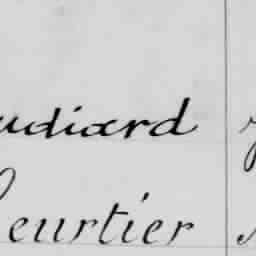 udiard
eurtier